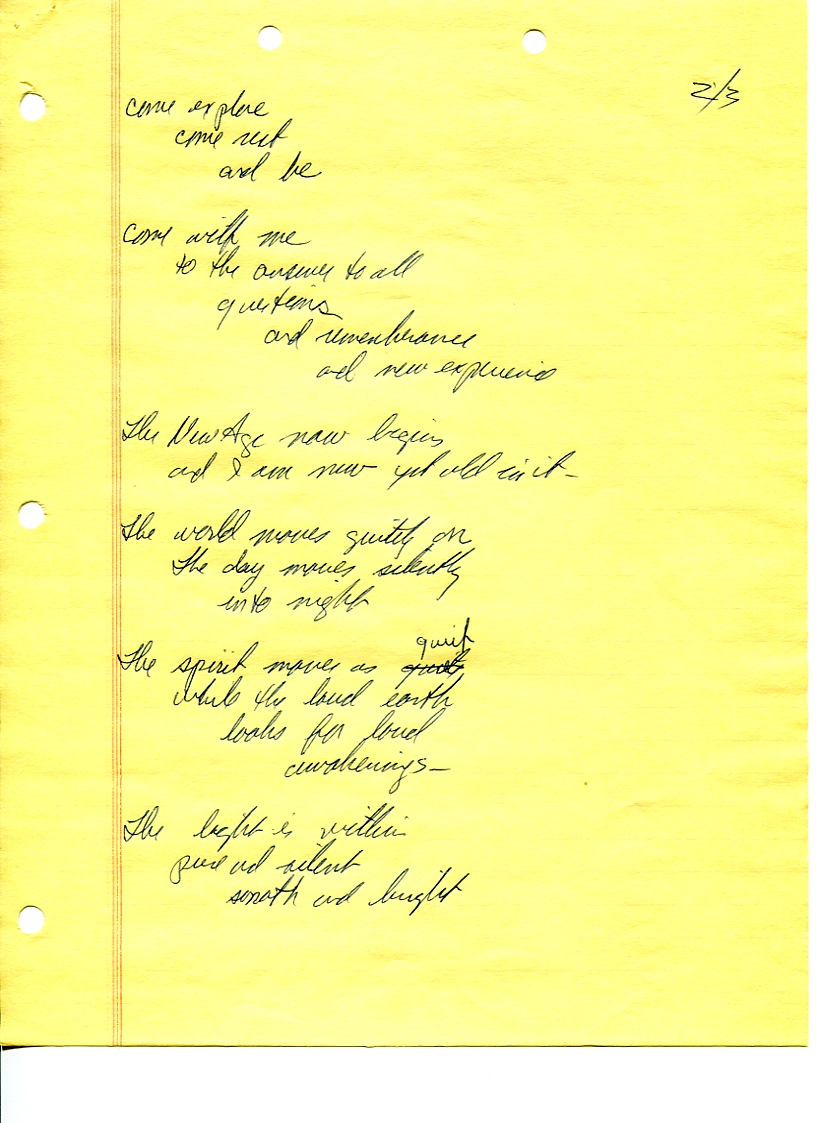 2/3
come explore
come rest
and be
come with me
to the answer to all
questions
and rememberance
and new experience
The New Age now begins
and I am new yet old in it -
The world moves quitely on
The day moves silently
into night
quiet
The spirit moves as
while the loud earth
looks for loud
awakenings -
The light is within
pure and silent
smooth and bright